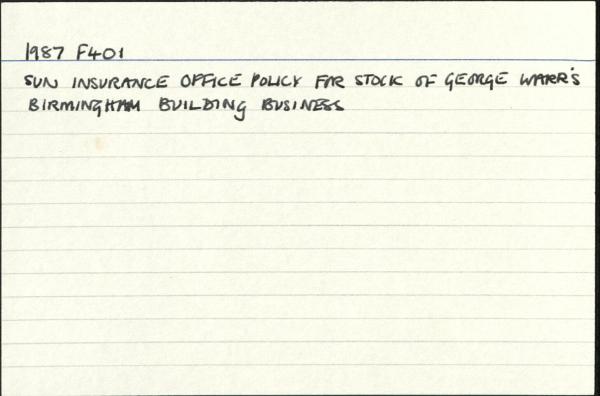 1987 F401
SUN INSURANCE OFFICE POLICY FOR STOCK OF GEORGE WARR'S
BIRMINGHAM BUILDING BUSINESS